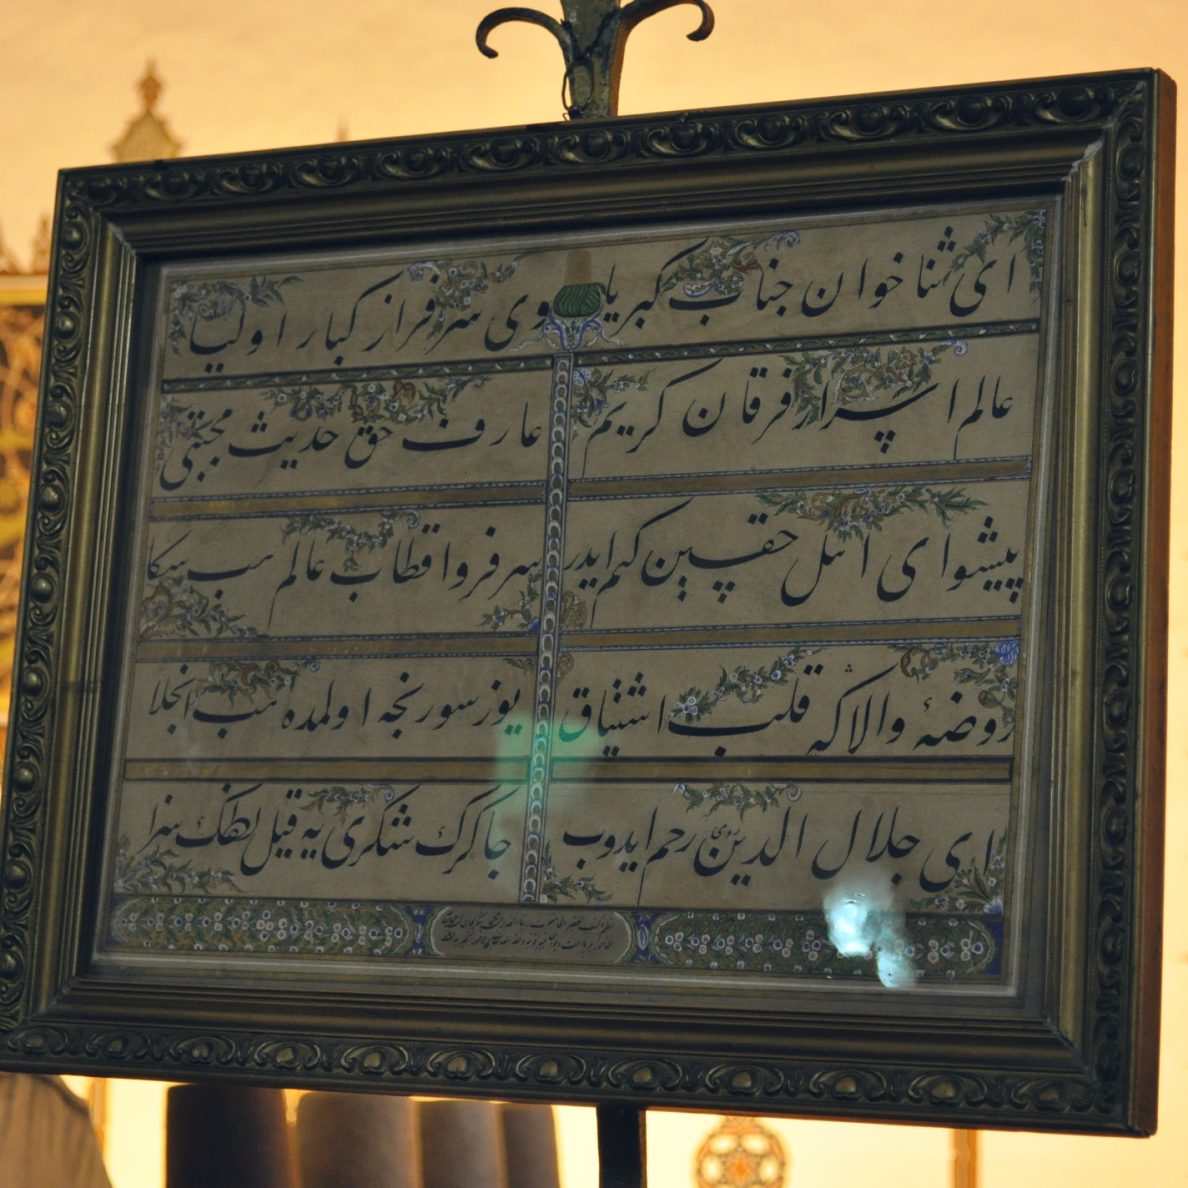 ای ثناخوان جناب کبریا وی سرفراز کبار اولیا
عالم اسرار فرقان کریم عارف حق حدیث مجتبی
پیشوای اهل حقسین کم ایدر سرفرو اقطاب عالم هب سکا
روضهٔ والا که قلب اشتیاق یوز سورنجه اولمده هب انجلا
ای جلال الدین رومی رحم ایدوب چاکرک شکری یه قیل لطفک سزا